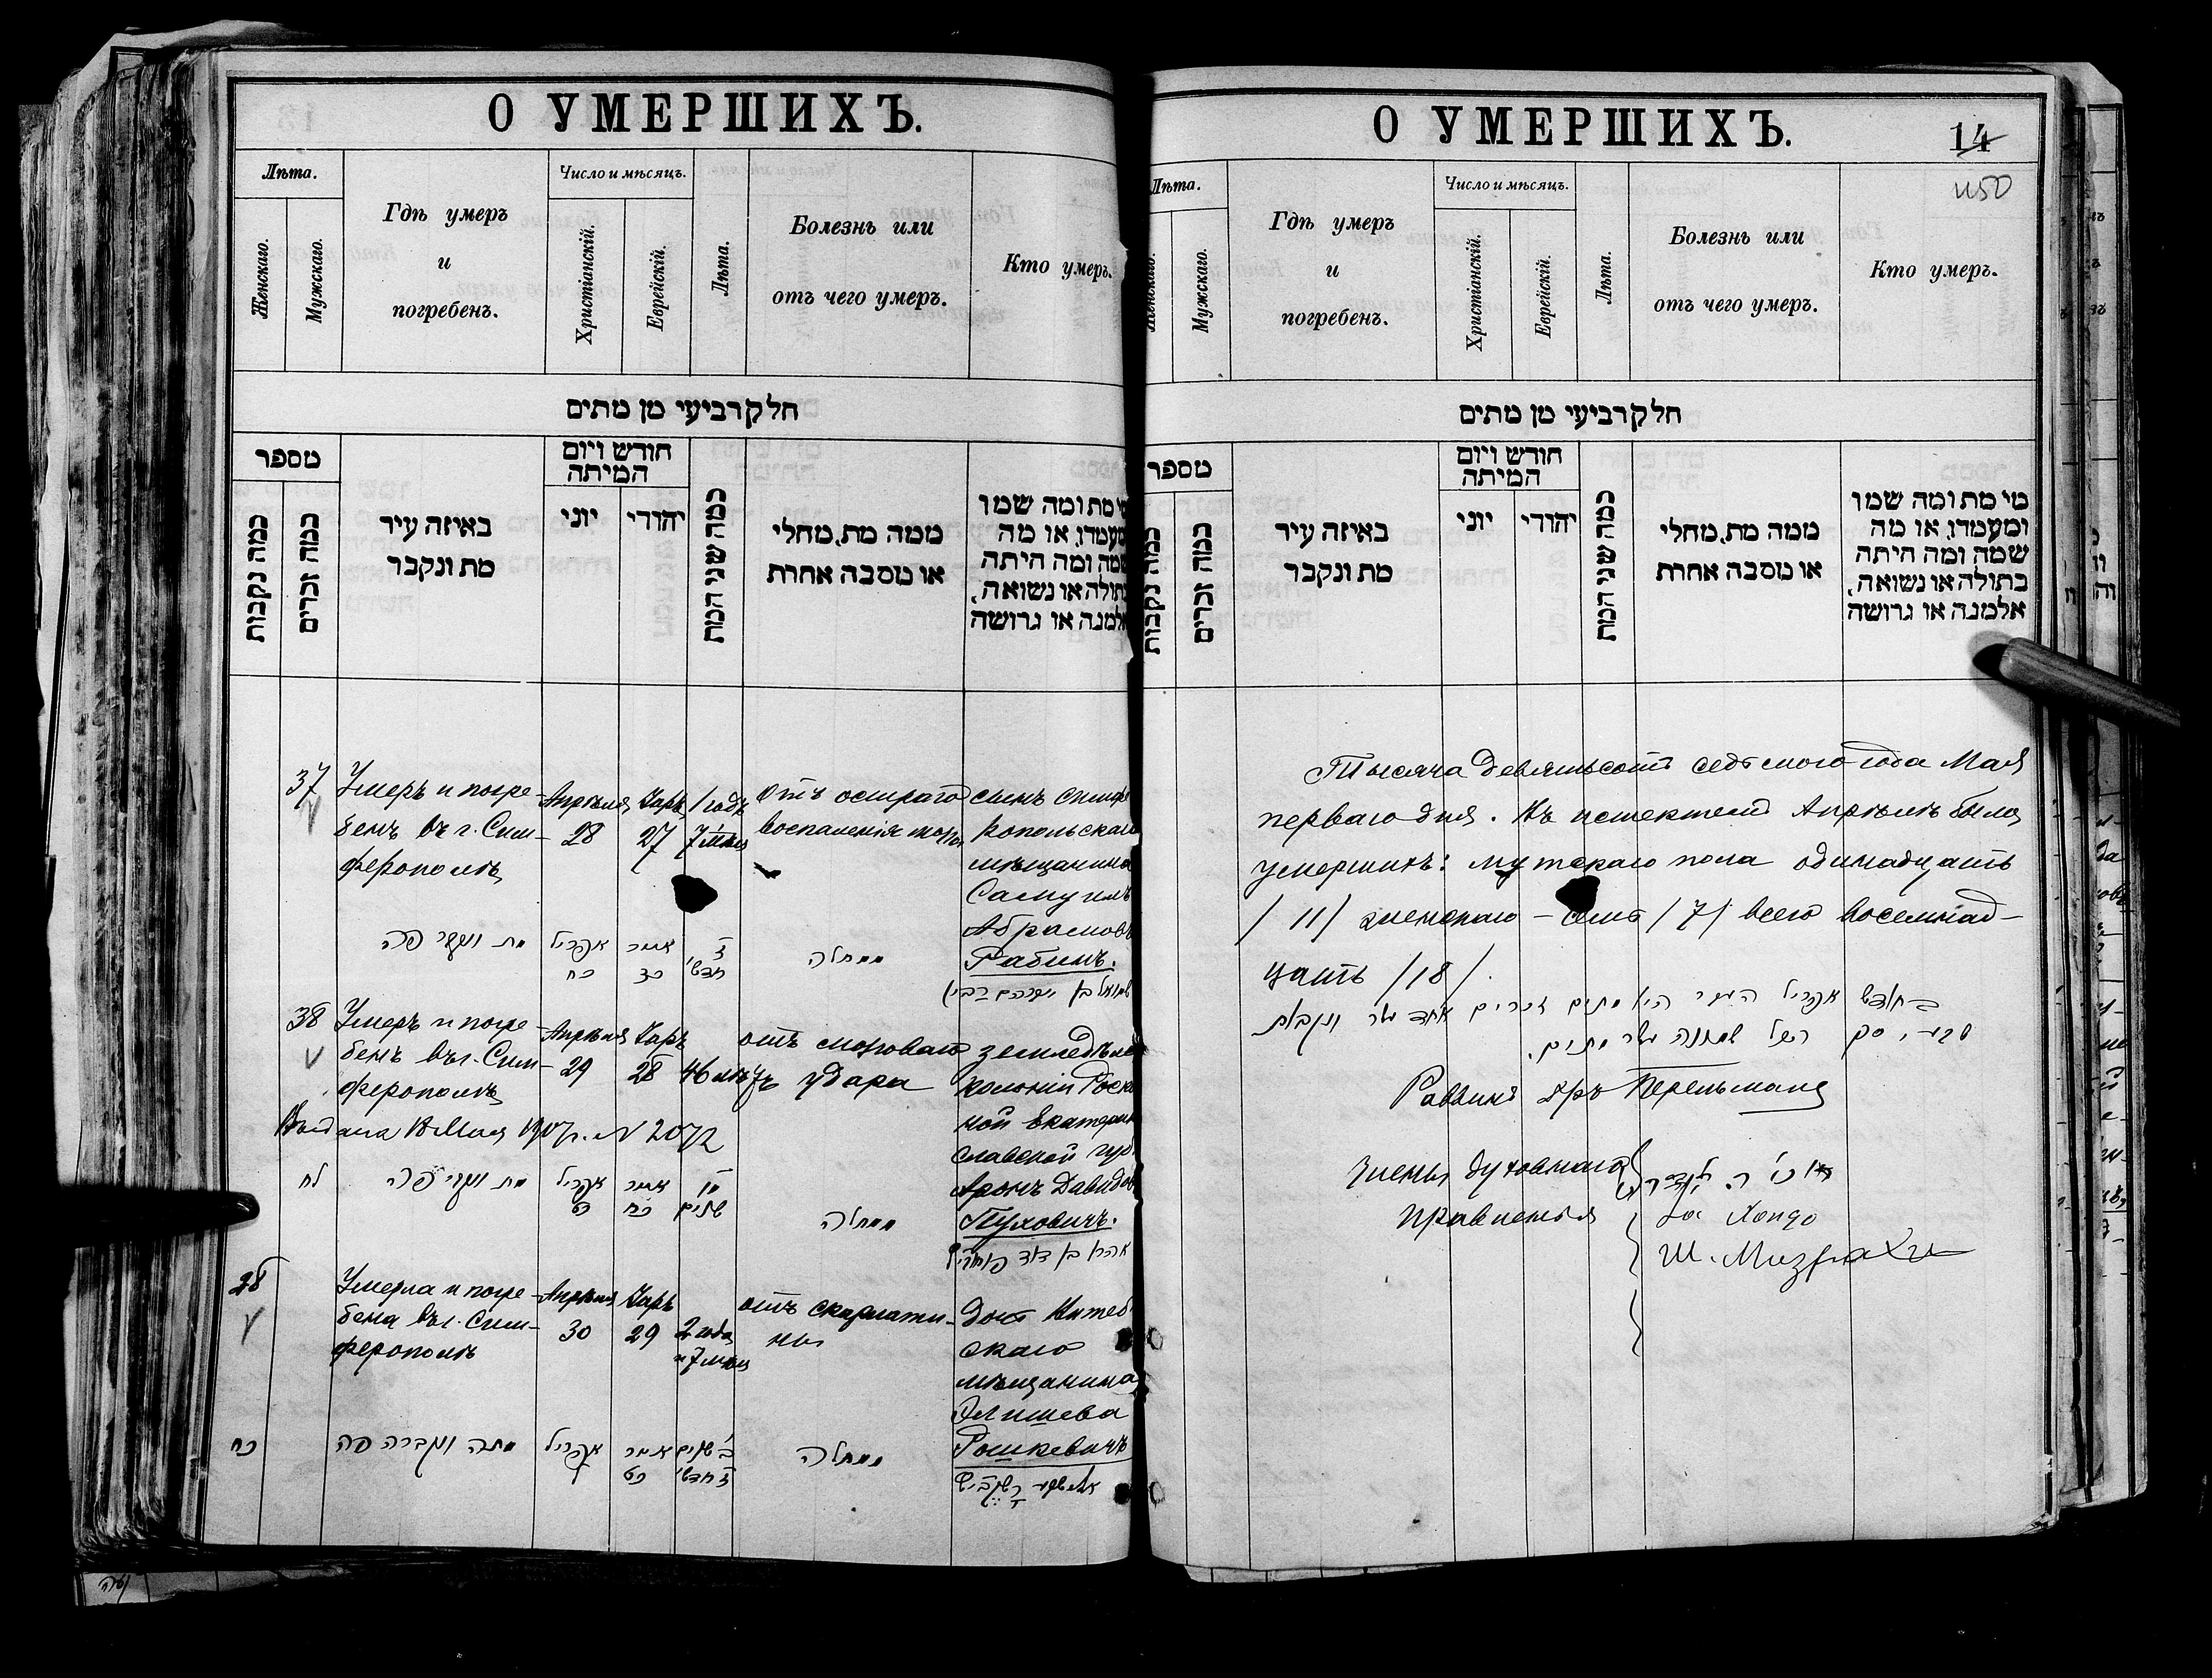 О УМЕРШИХЪ.
Лѣта.
Женскаго.
Мужскаго.
Гдѣ умеръ
и
погребенъ.
Число и мѣсяцъ.
Христіанскій.
Еврейскій.
Лѣта.
Болезнь или
отъ чего умеръ.
Кто умеръ.
חלק רביעי מן מתים
מספר
כמה נקבות
כמה זכרים
באיזה עיר
מת ונקבר
חודש ויום
המיתה
יוני
יהודי
כמה שני המת
ממה מת, מחלי
או מסבה אחרת
מי מת ומה שמו
ומעמדו, או מה
שמה ומה היתה
בתולה או נשואה,
אלמנה או גרושה
37
Умеръ и погре-
бенъ въ г. Сим-
ферополѣ
Апрѣля
28
Іяръ
27
1 годъ
7 мѣс
отъ остраго
воспаленія
сынъ симфе
ропольскаго
мѣщанина
Самуилъ
Абрамовъ
Рабинъ.
מת ונקבר פה
אפריל
כח
אייר
כז
ז
חדשי
ממחלה
שמואל בן אברהם רבין
38
Умеръ и погре-
бенъ въ г. Сим-
ферополѣ
Апрѣля
29
Іяръ
28
46 лѣтъ
отъ мозговаго
удара
земледѣлецъ
колоніи
ной Екатерино
славской губ
Аронъ Давидов
Пухович.
Выдана 18 Мая 1907 г. № 2072
לח
מת ונקבר פה
אפריל
כט
אייר
כח
מו
שנים
ממחלה
אהרן בן דוד
28
Умерла и погре-
бена въ г. Сим-
ферополѣ
Апрѣля
30
Іяръ
29
2 года
и 7 мѣс
отъ скарлати-
ны
дочь Витеб
скаго
мѣщанина
Элишева
Рошкевичъ
כח
מתה ונקברה פה
אפריל
ל
אייר
כט
ב שנים
ז חדשי
ממחלה
אלישבע
О УМЕРШИХЪ.
14
1150
Лѣта.
Женскаго.
Мужскаго.
Гдѣ умеръ
и
погребенъ.
Число и мѣсяцъ.
Христіанскій.
Еврейскій.
Лѣта.
Болезнь или
отъ чего умеръ.
Кто умеръ.
חלק רביעי מן מתים
מספר
כמה נקבות
כמה זכרים
באיזה עיר
מת ונקבר
חודש ויום
המיתה
יוני
יהודי
כמה שני המת
ממה מת, מחלי
או מסבה אחרת
מי מת ומה שמו
ומעמדו, או מה
שמה ומה היתה
בתולה או נשואה,
אלמנה או גרושה
Тысяча девятьсотъ седьмого года Мая
перваго дня. Въ истекшемъ Апрѣлѣ было
умершихъ: мужскаго пола одинадцать
/11/ женскаго — семь /7/ всего восемнад-
цать /18/.
בחודש אפריל העבר היו מתים זכרים אחד עשר ונקבות
שבע, סך הכל שמונה עשר מתים.
Раввинъ Др Перельманъ
Члены духовнаго
правленія
Хондо
Ш. Мизрахи